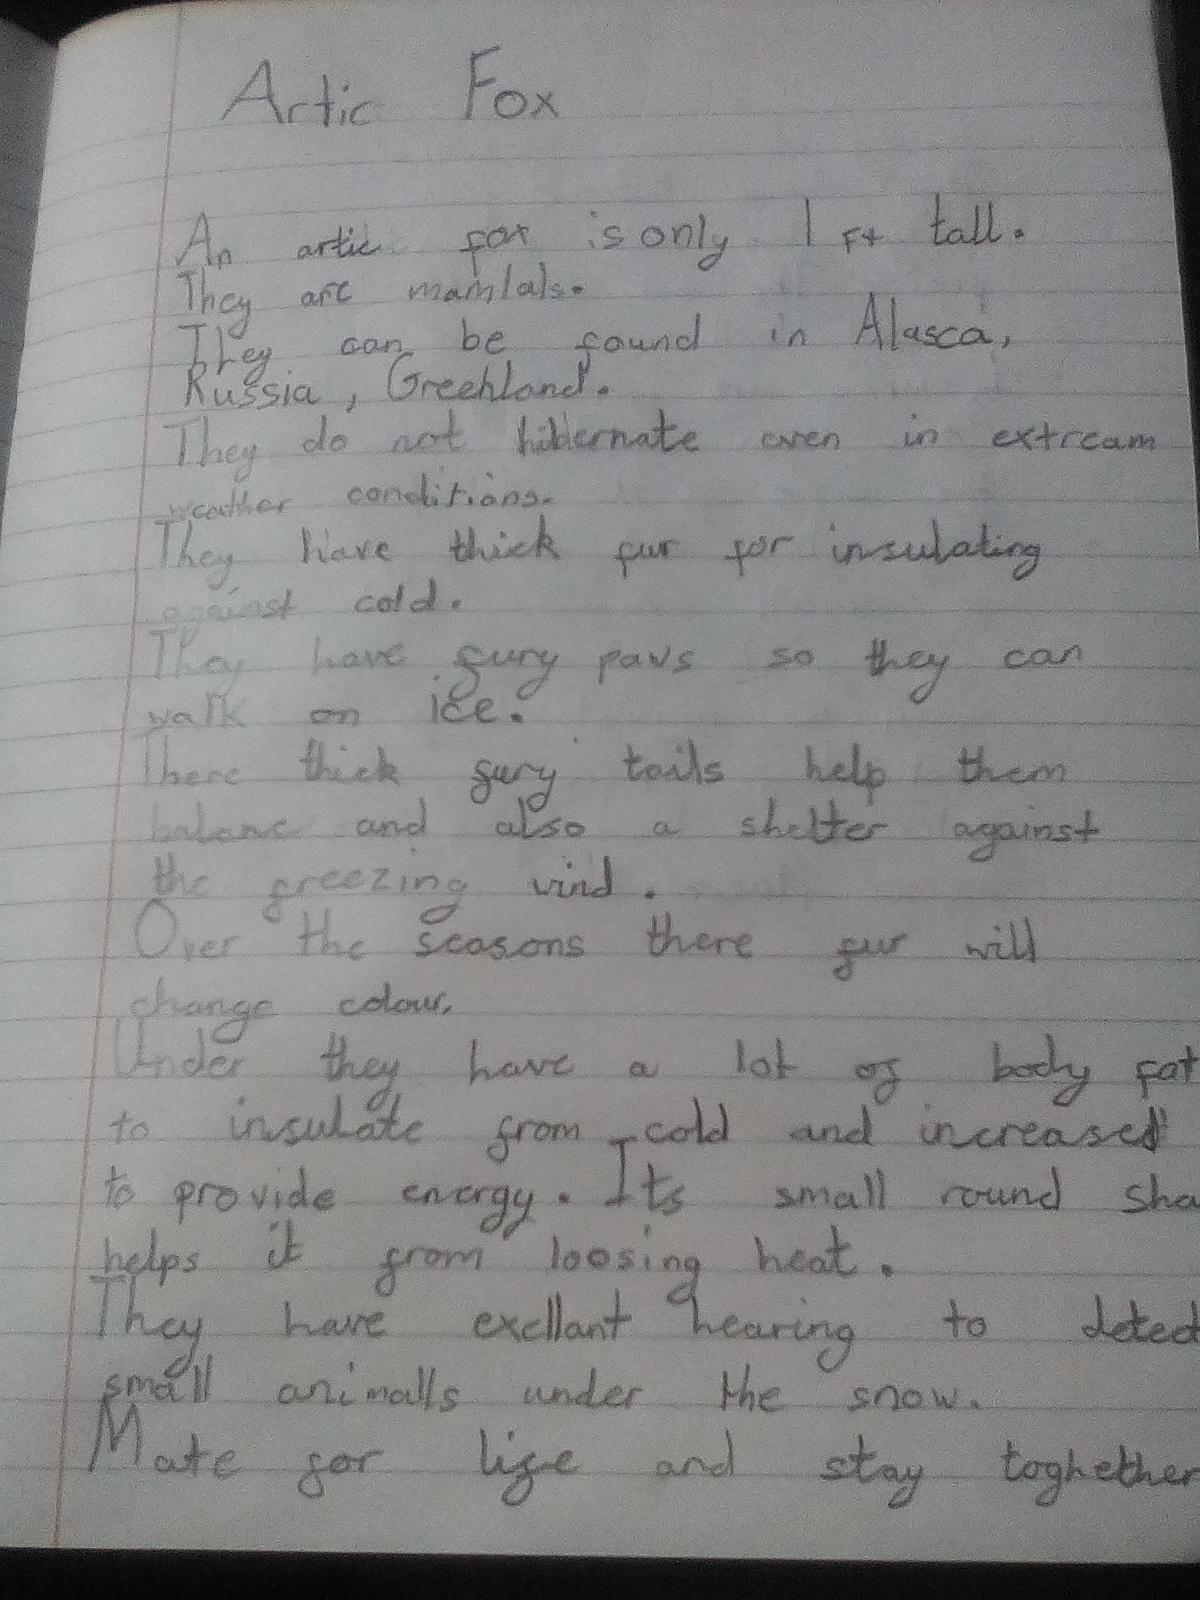 Artic Fox
An artic fox is only 1 ft tall.
They are mamlals.
They can be found in Alasca,
Russia, Greenland.
They do not hibernate even in extream
weather conditions.
They have thick fur for insulating
against cold.
They have fury paws so they can
walk on ice.
There thick fury tails help them
balanc and also a shelter against
the freezing wind.
Over the seasons there fur will
change colour.
Under they have a lot of body fat
to insulate from cold and increased
to provide energy. Its small round sha
helps it from loosing heat.
They have exellant hearing to detect
small animalls under the snow.
Mate for life and stay toghether